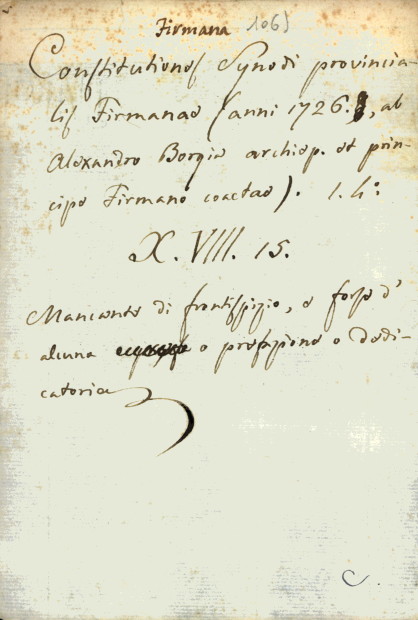 Firmana 1065
Constitutiones Synodi provincia-
lis Firmanae (anni 1726. , ab
Alexandro Borgia archiep. et prin-
cipe Firmano coactae). 1. 4:
X. VIII. 15.
Mancante di frontispizio, e forse d'
alcuna o prefazione o dedi-
catoria
C.